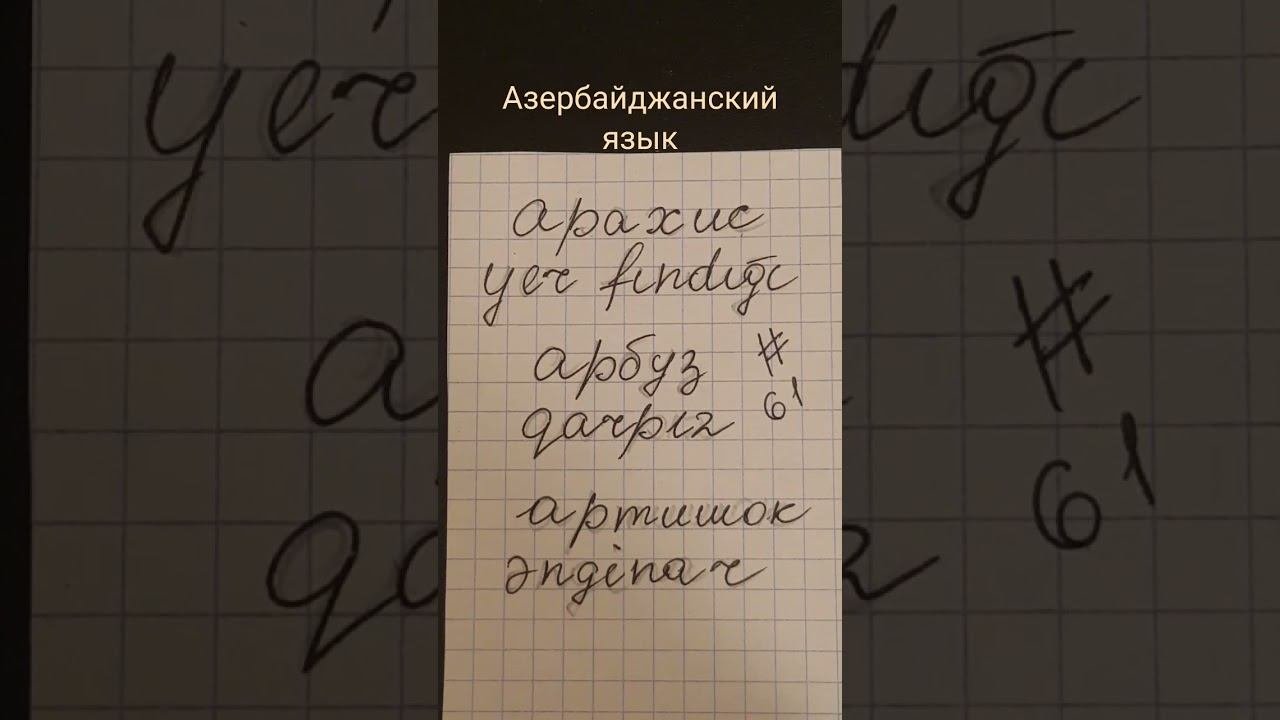 Азербайджанский
язык
арахис
yer fındığı
арбуз #
qarpız 61
артишок